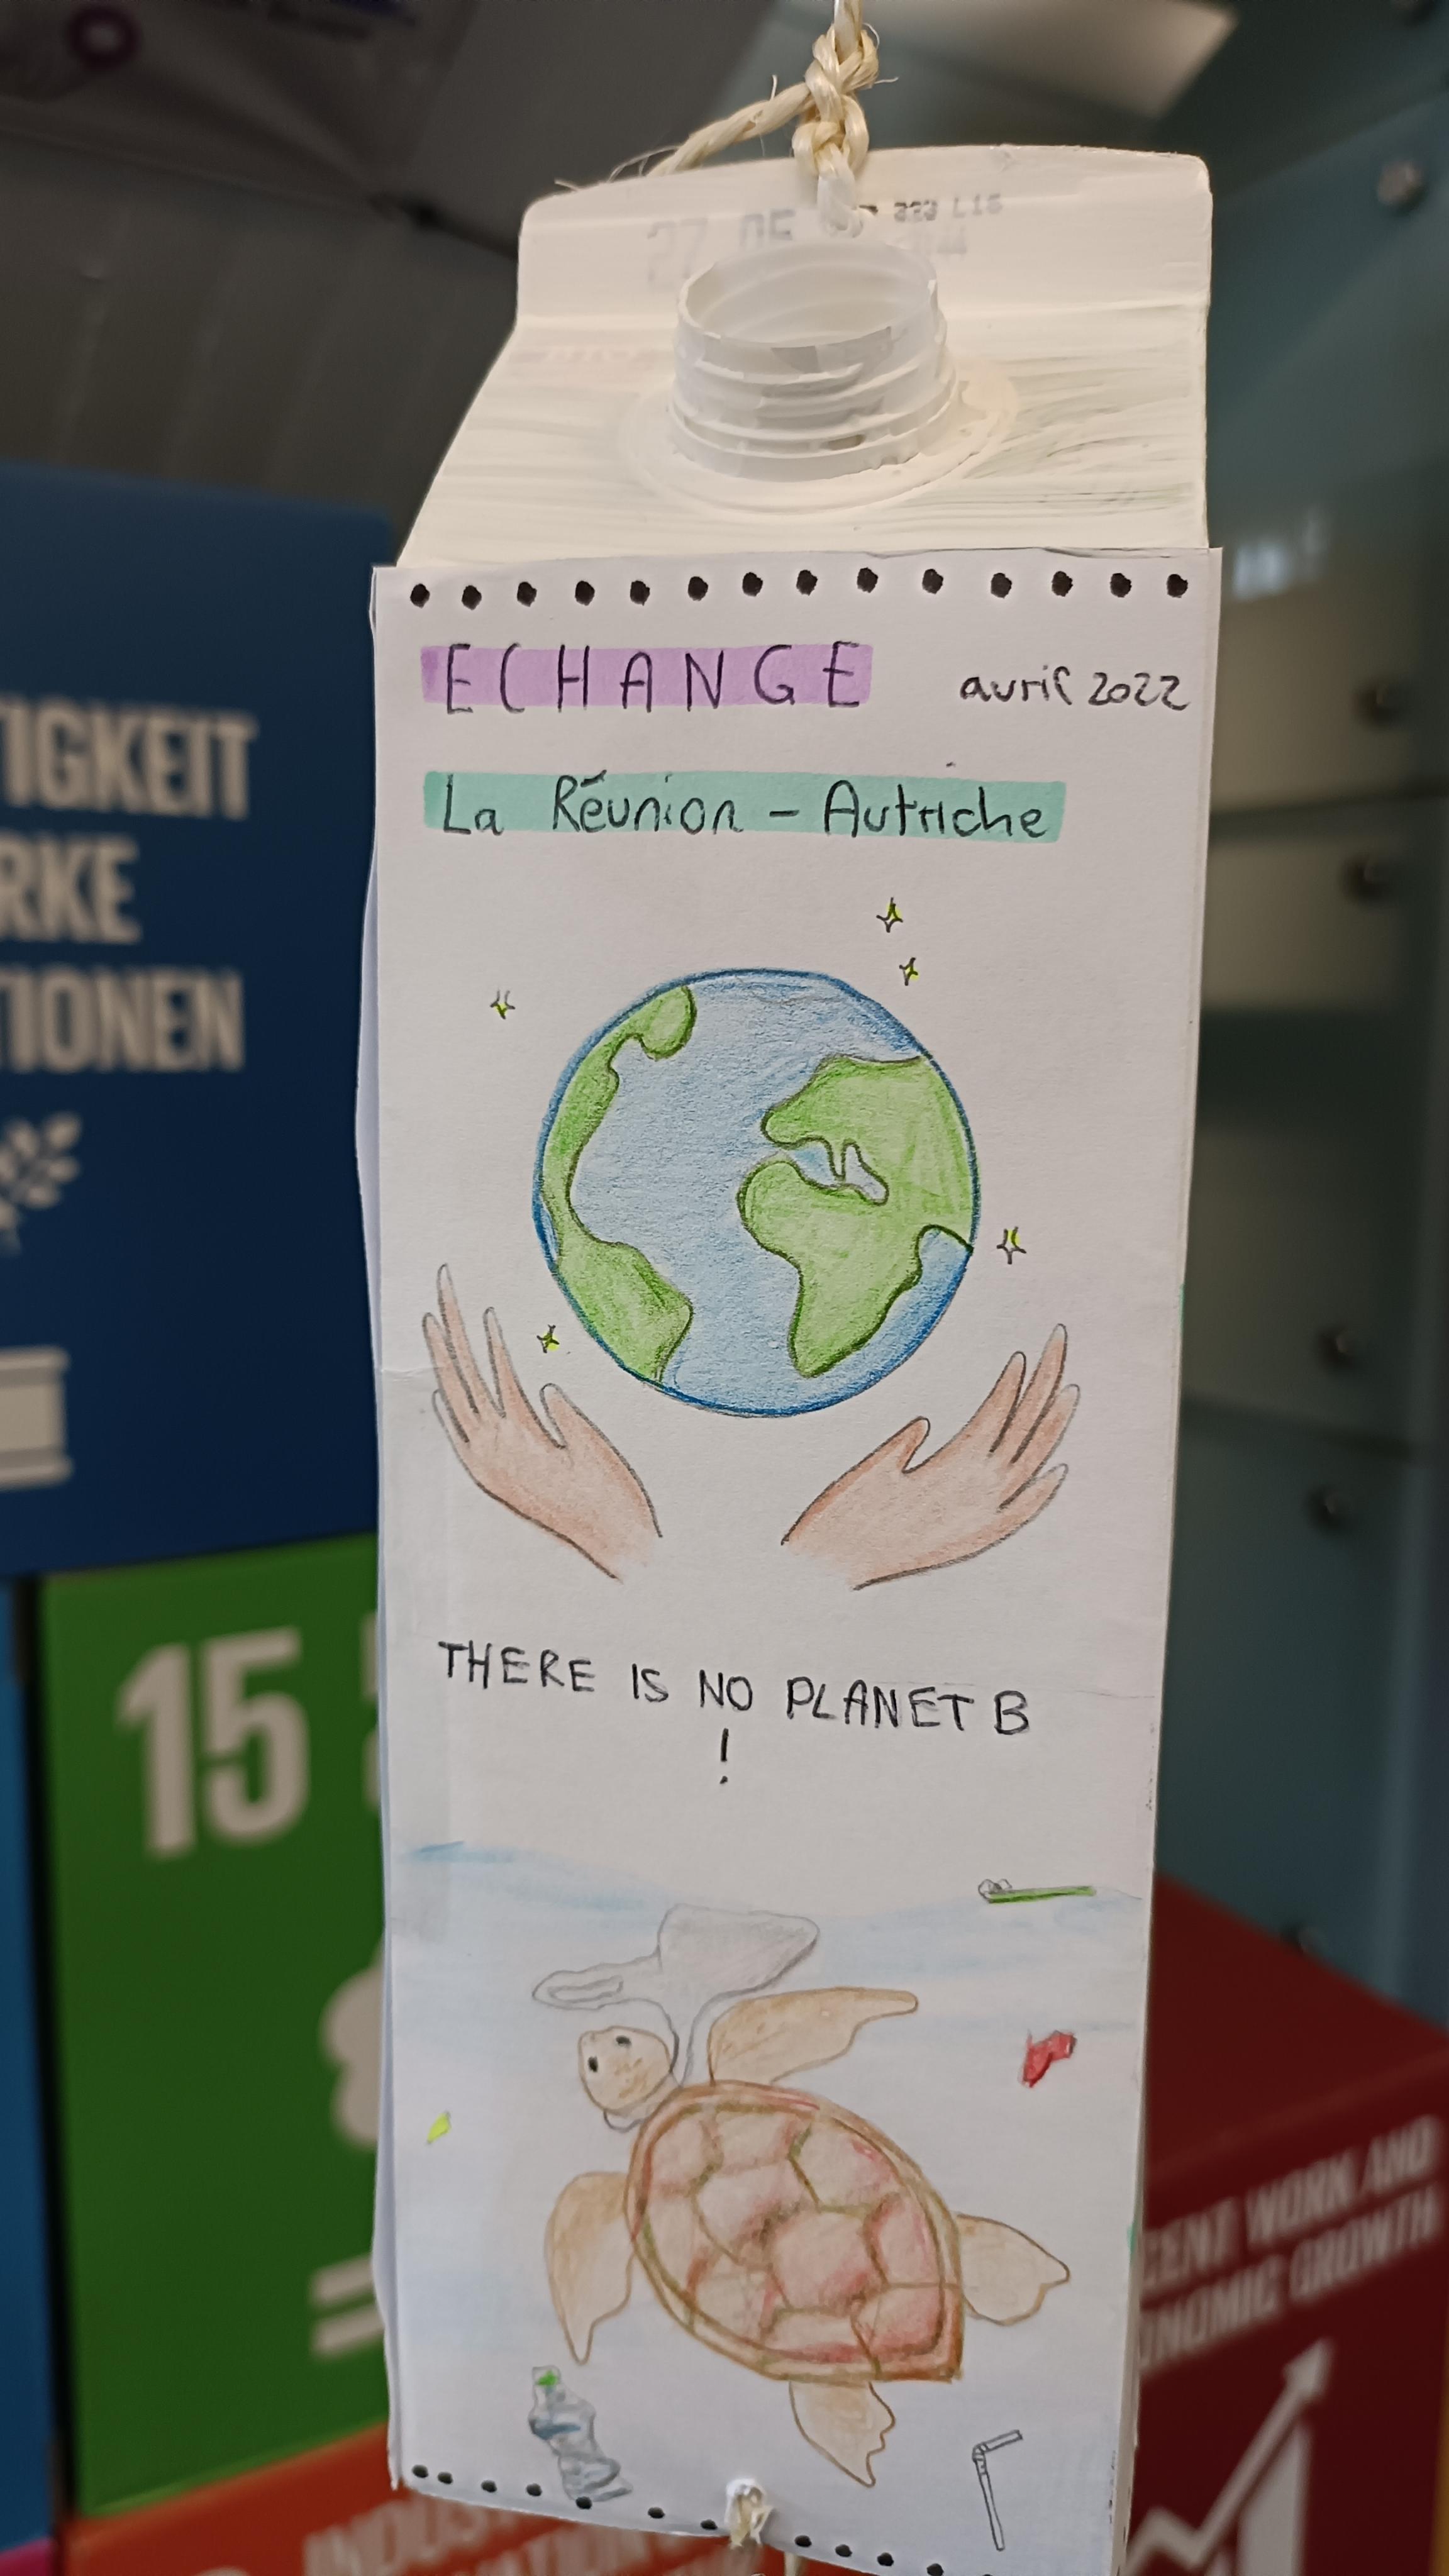 333 L15
27 DE
ECHANGE avril 2022
La Réunion - Autriche
THERE IS NO PLANET B
!
TIGKEIT
RKE
TIONEN
15
CENT WORK AND
ONOMIC GROWTH
INDUS
VATION